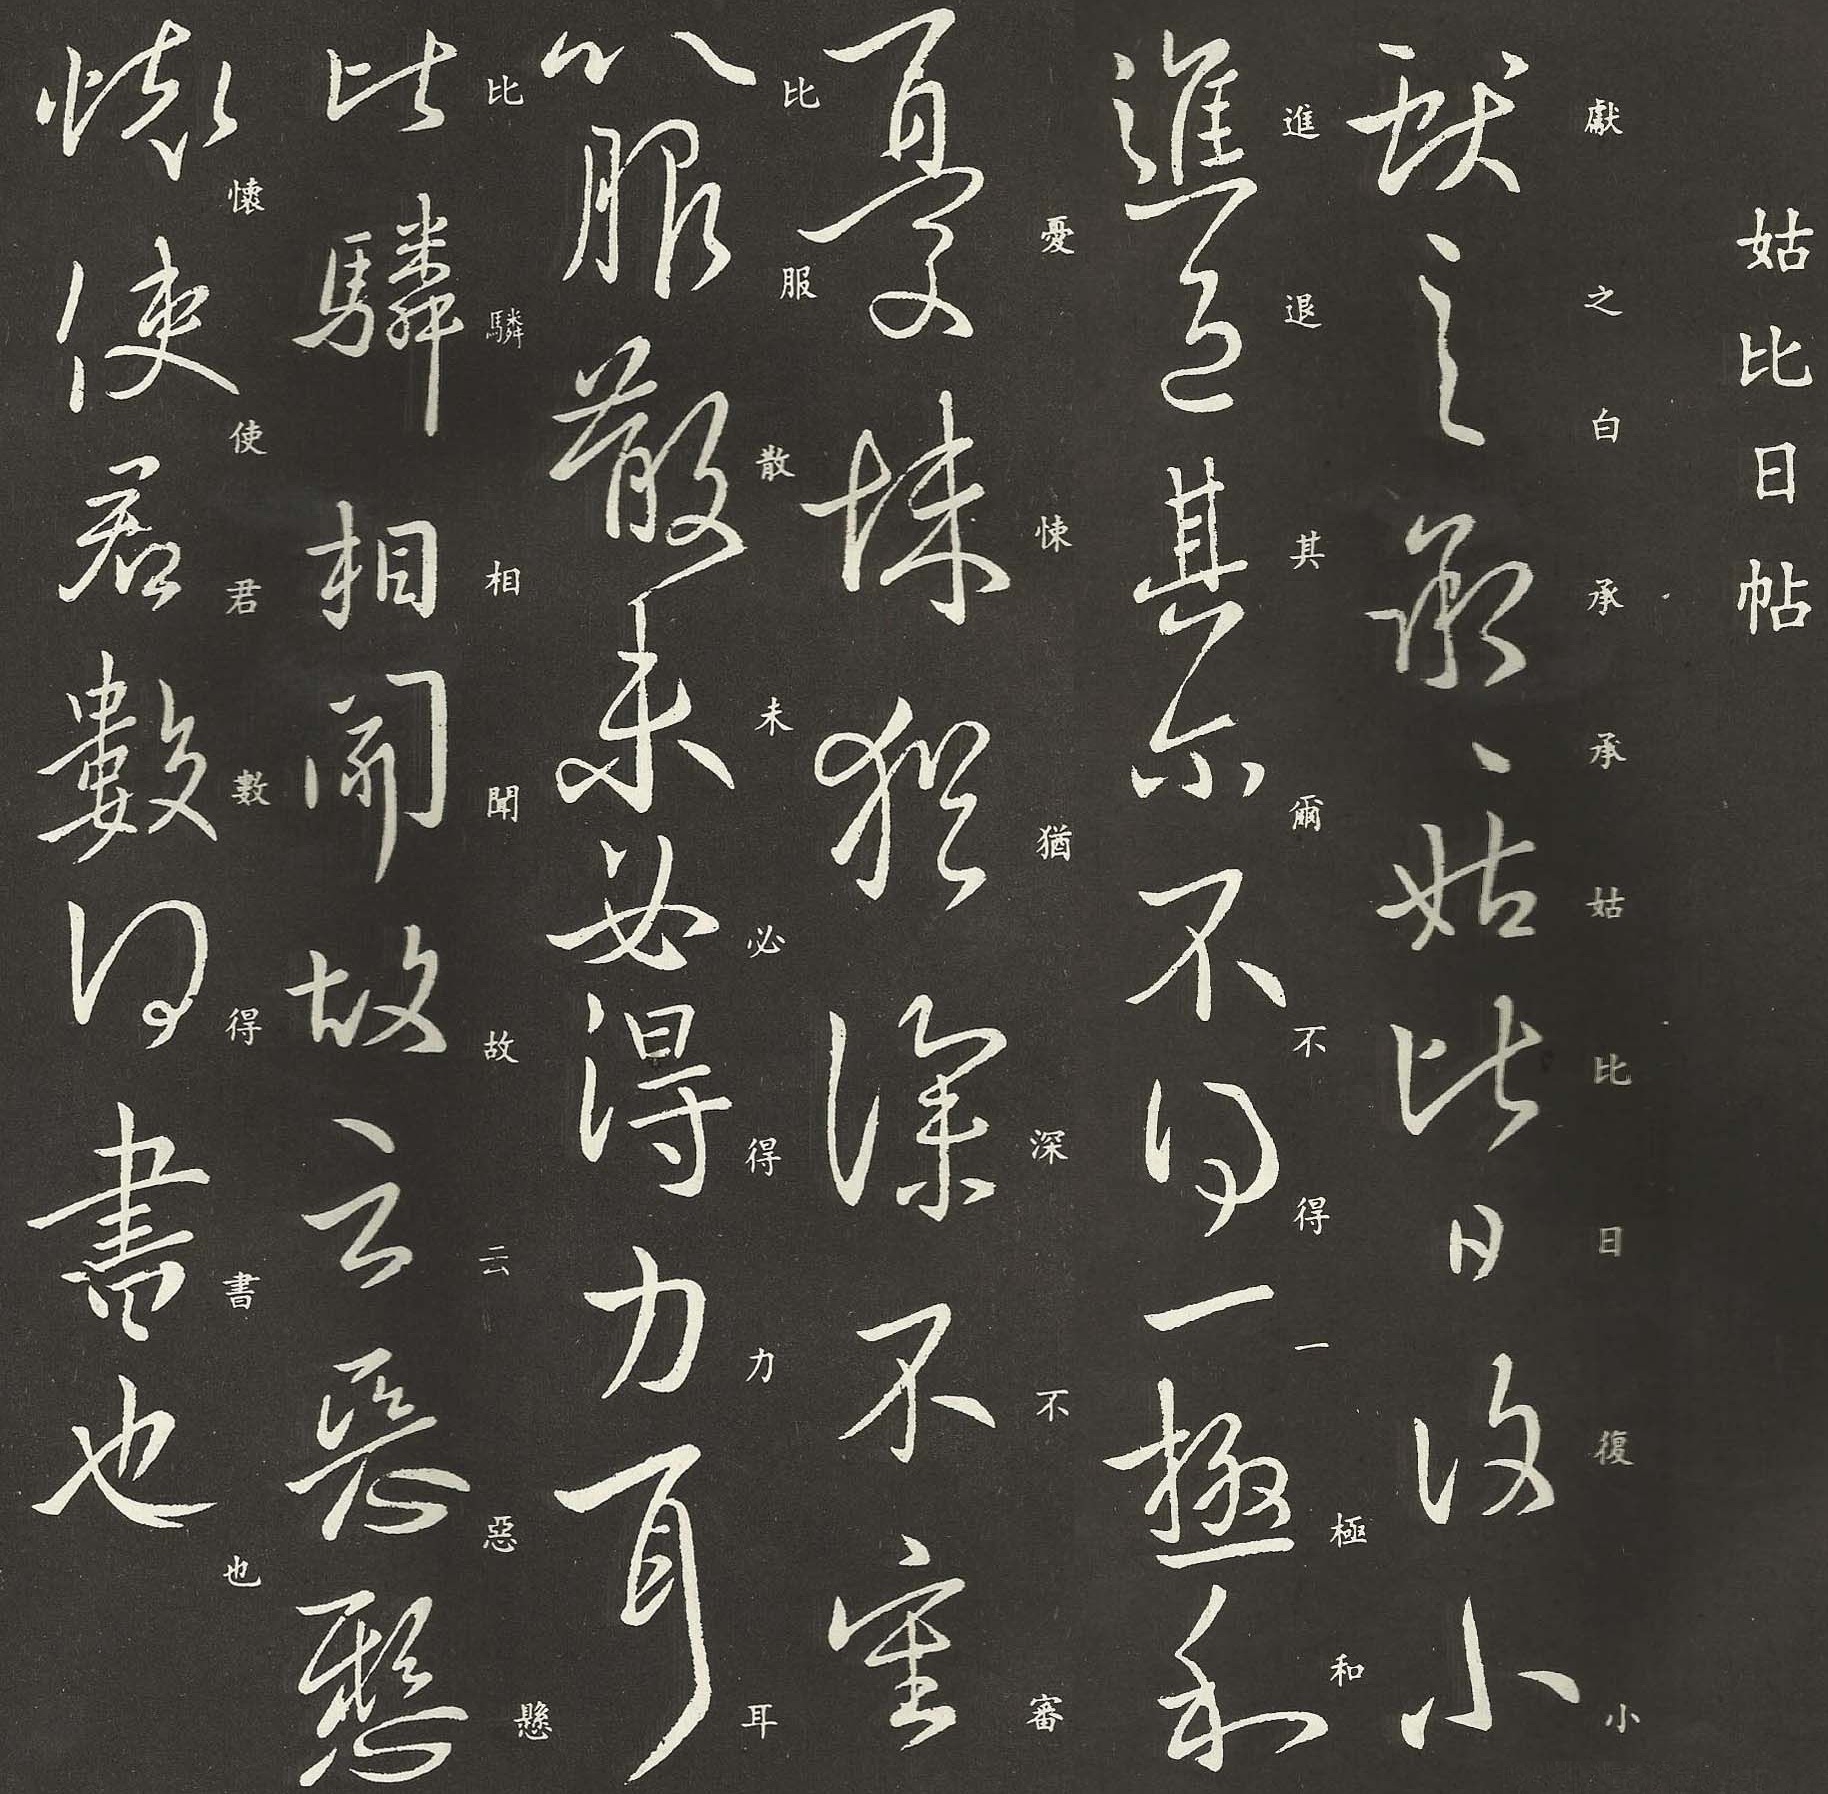 姑比日帖
獻之白承承姑比日復小
進退其爾不得一極和
憂悚猶深不審
比服散未必得力耳
比驎相聞故云惡懸
懐使君數得書也